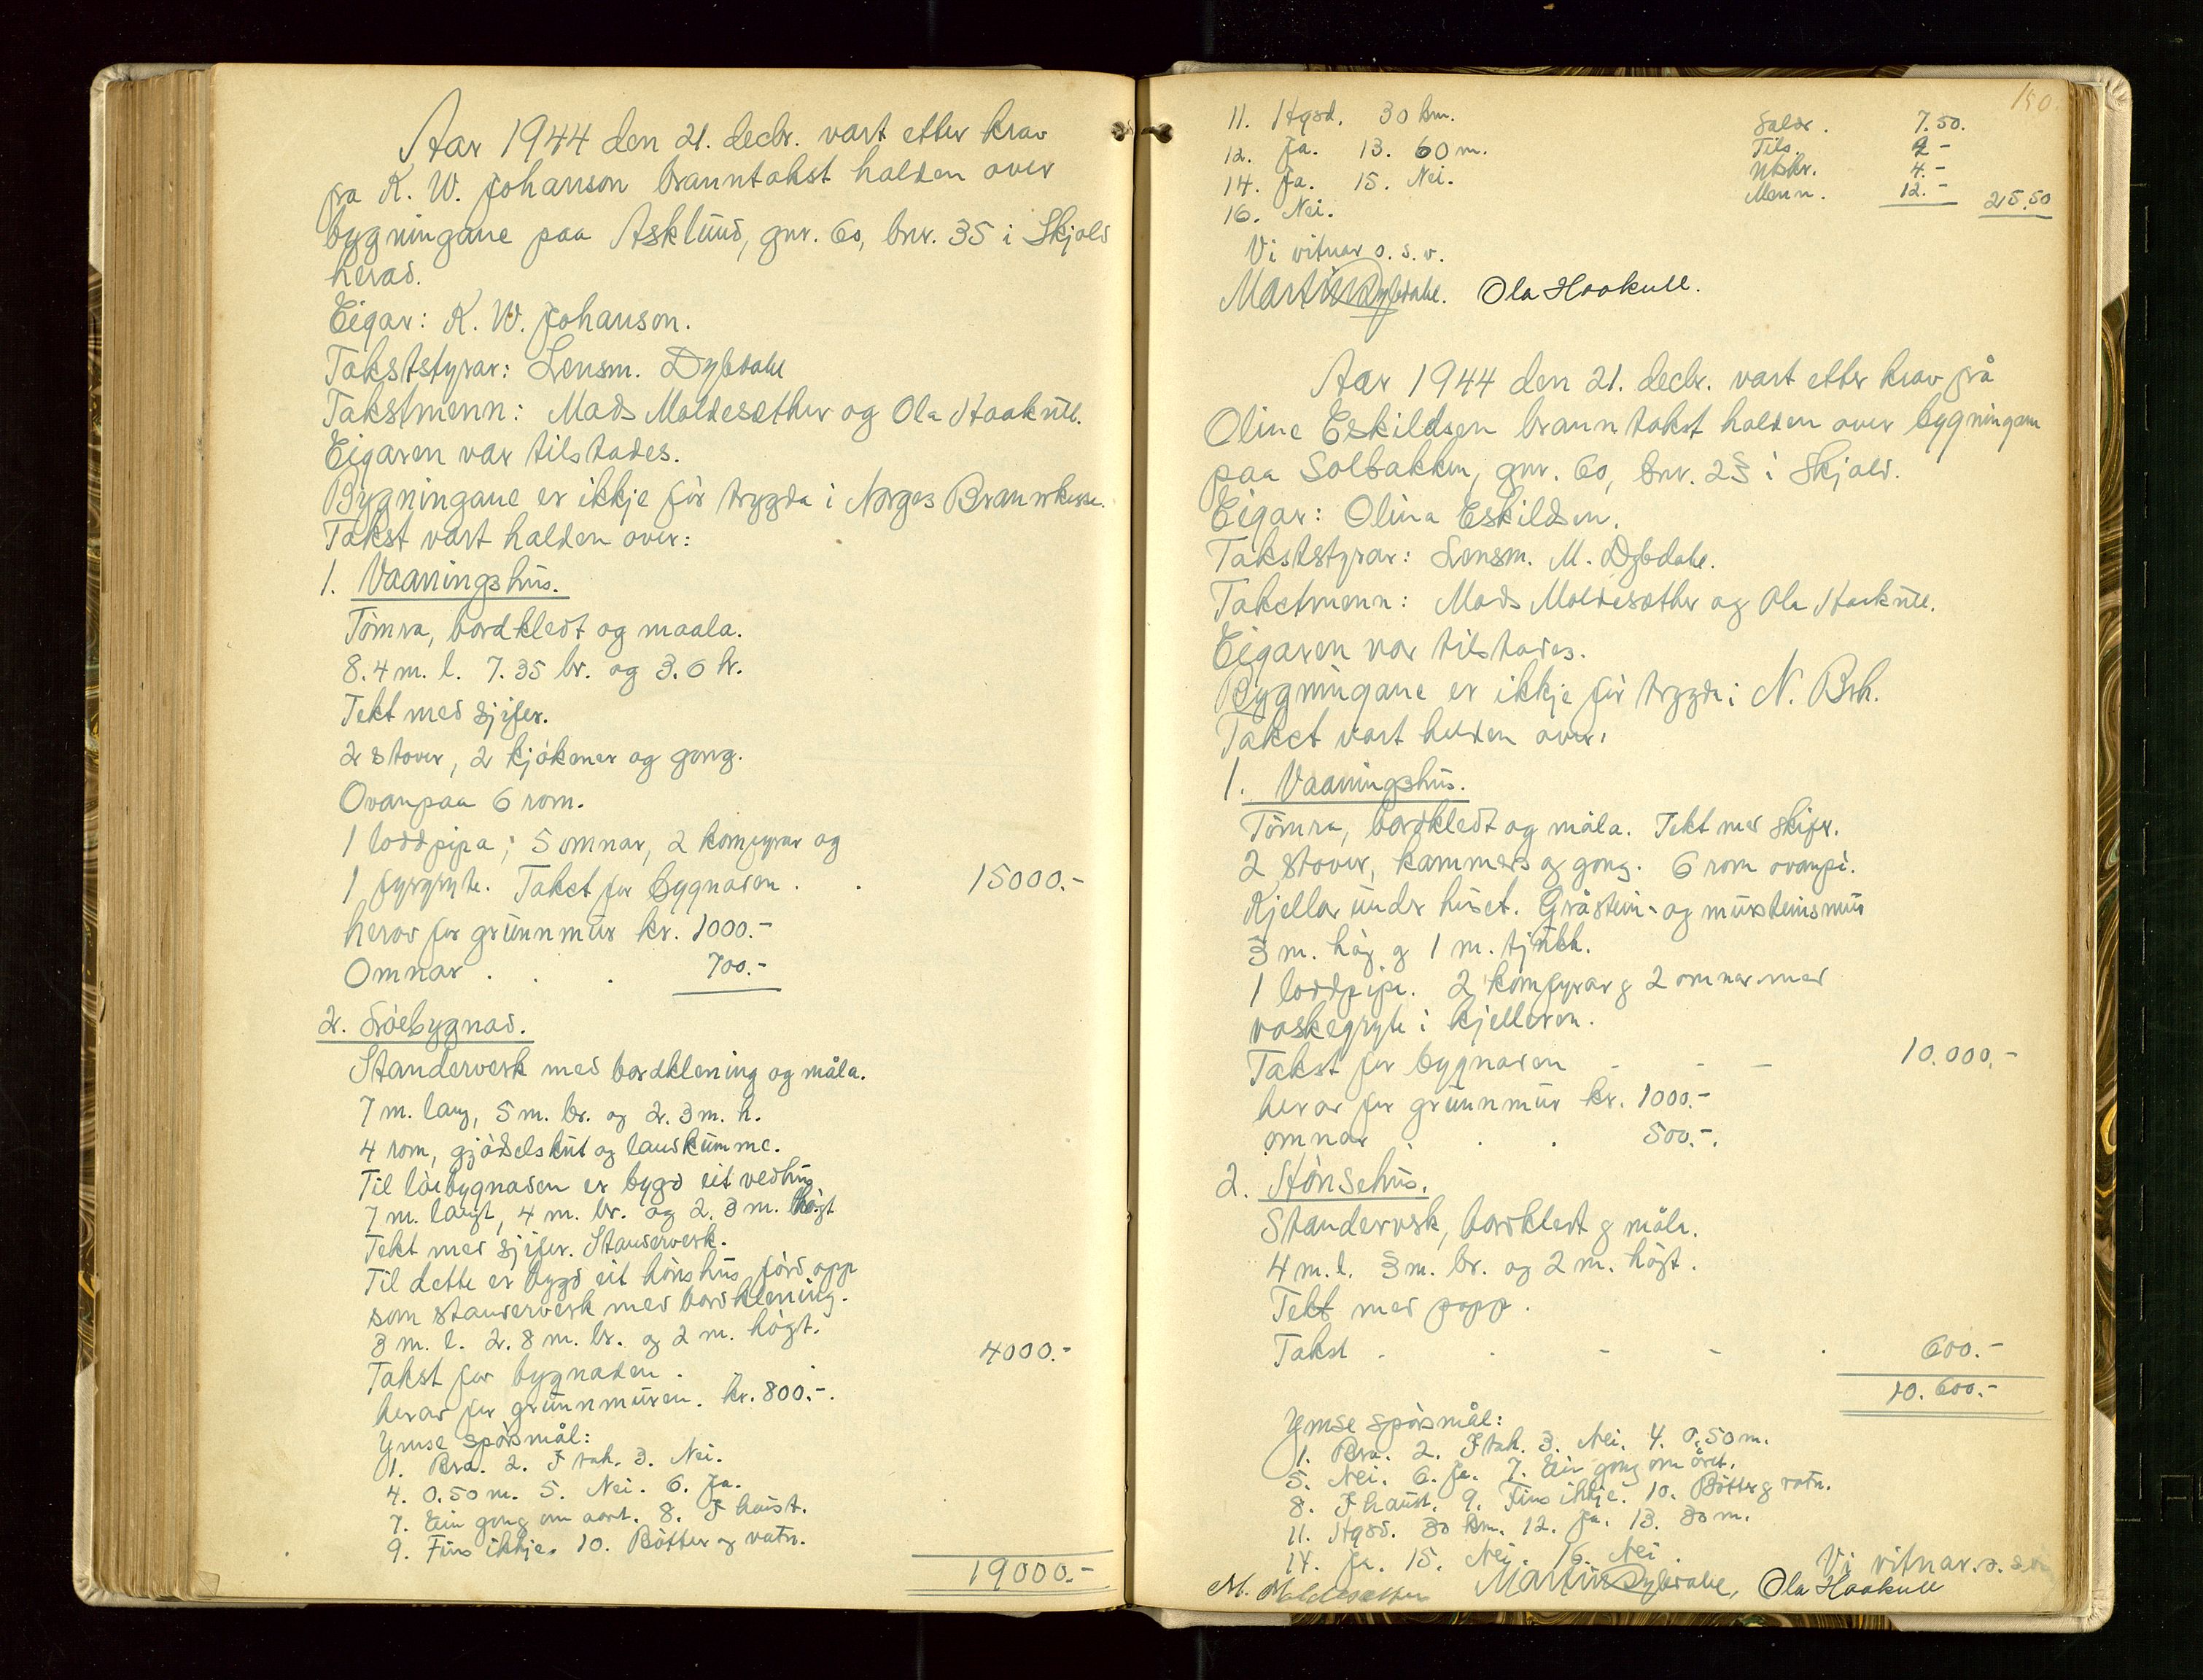 Aar 1944 den 21. decbr. vart etter krav
fra K. W. Johanson branntakst halden over
bygningane paa Asklund, gnr. 60, bnr. 35 i Skjold
herad.
Eigar: K. W. Johanson.
Takststyrar: Lensm. Dybdahl
Takstmenn: Mads Moldesæther og Ola Haakull.
Eigaren var tilstades.
Bygningane er ikkje før trygda i Norges Brannkasse.
Takst vart halden over:
1. Vaaningshus.
Tømra, bordkledt og maala.
8.4 m. l. 7.35 br. og 3.6 h.
Tekt med sjifer.
2 stover, 2 kjøkener og gong.
Ovanpaa 6 rom.
1 loddpipa; 5 omnar, 2 komfyrar og
1 fyrgryte. Takst for bygnaden . . 15000.-
herav for grunnmur kr. 1000.-
Omnar . . . 700.-
2. Løebygnad.
Standerverk med bordklening og måla.
7 m. lang, 5 m. br. og 2.3 m. h.
4 rom, gjødselskut og landkumme.
Til løebygnaden er bygd eit vedhus
7 m. langt, 4 m. br. og 2.3 m. høgt
Tekt med sjifer. Standerverk.
Til dette er bygd eit hønshus førd opp
som standerverk med bordklening.
3 m. l. 2.8 m. br. og 2 m. høgt.
Takst for bygnaden . . 4000.-
herav for grunnmuren. kr. 800.-.
Ymse spørsmål:
1. Bra. 2. I tak. 3. Nei.
4. 0.50 m. 5. Nei. 6. Ja.
7. Ein gong om aaret. 8. I haust.
9. Fins ikkje. 10. Bøtter og vatn.
19000.-
150.
11. Hgsd. 30 km.
12. Ja. 13. 60 m.
14. Ja. 15. Nei.
16. Nei.
Saldr. 7.50.
Tils. 2-
Utskr. 4.-
Menn. 12.- 25.50
Vi vitnar o. s. v.
Martin Dybdahl. Ola Haakull.
Aar 1944 den 21. decbr. vart etter krav frå
Oline Eskildsen branntakst halden over bygningane
paa Solbakken, gnr. 60, bnr. 23 i Skjold.
Eigar: Olina Eskildsen.
Takststyrar: Lensm. M. Dybdahl.
Takstmenn: Mads Moldesæther og Ola Haakull.
Eigaren var tilstades.
Bygningane er ikkje før trygda i N. Brk.
Takst vart halden over:
1. Vaaningshus.
Tømra, bordkledt og måla. Tekt med skifer.
2 stover, kammers og gong. 6 rom ovanpå.
Kjellar under huset. Gråstein- og mursteinsmur
3 m. høg og 1 m. tjukk.
1 loddpipe. 2 komfyrar og 2 omnar med
vaskegryte i kjelleren.
Takst for bygnaden - - - 10.000.-
herav for grunnmur kr. 1000.-
omnar . . . 500.-.
2. Hønsehus.
Standerverk, bordkledt og måla.
4 m. l. 3 m. br. og 2 m. høgt.
Tekt med papp.
Takst - . - - . 600.-
10.600.-
Ymse spørsmål:
1. Bra. 2. I tak. 3. Nei. 4. 0.50 m.
5. Nei. 6. Ja. 7. Ein gong om året.
8. I haust. 9. Fins ikkje. 10. Bøtter og vatn.
11. Hgsd. 30 km. 12. Ja. 13. 30 m.
14. Ja. 15. Nei. 16. Nei.
Vi vitnar o. s. v.
M. Moldesæther Martin Dybdahl, Ola Haakull